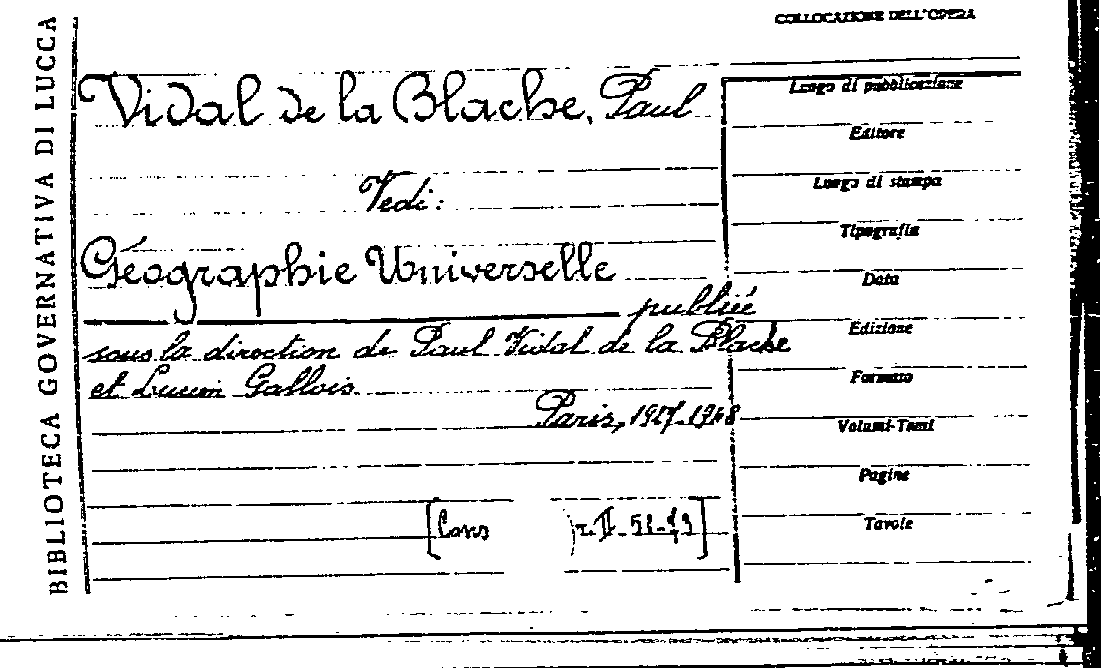 BIBLIOTECA GOVERNATIVA DI LUCCA
COLLOCAZIONE DELL'OPERA
Vidal de la Blache, Paul
Vedi:
Géographie Universelle
publiée
sous la direction de Paul Vidal de la Blache
et Lucien Gallois
Paris, 1927-1948
[Cons
Luogo di pubblicazione
Editore
Luogo di stampa
Tipografia
Data
Edizione
Formato
Volumi-Tomi
Pagine
Tavole